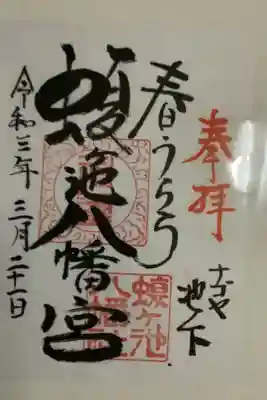 奉拝
ナゴヤ
池下
春うらら
蝮池八幡宮
蝮ヶ池
八幡社
令和三年三月二十一日